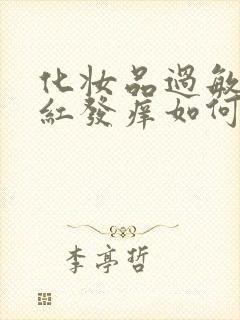 化妆品過敏
紅發痒如何
李亭哲